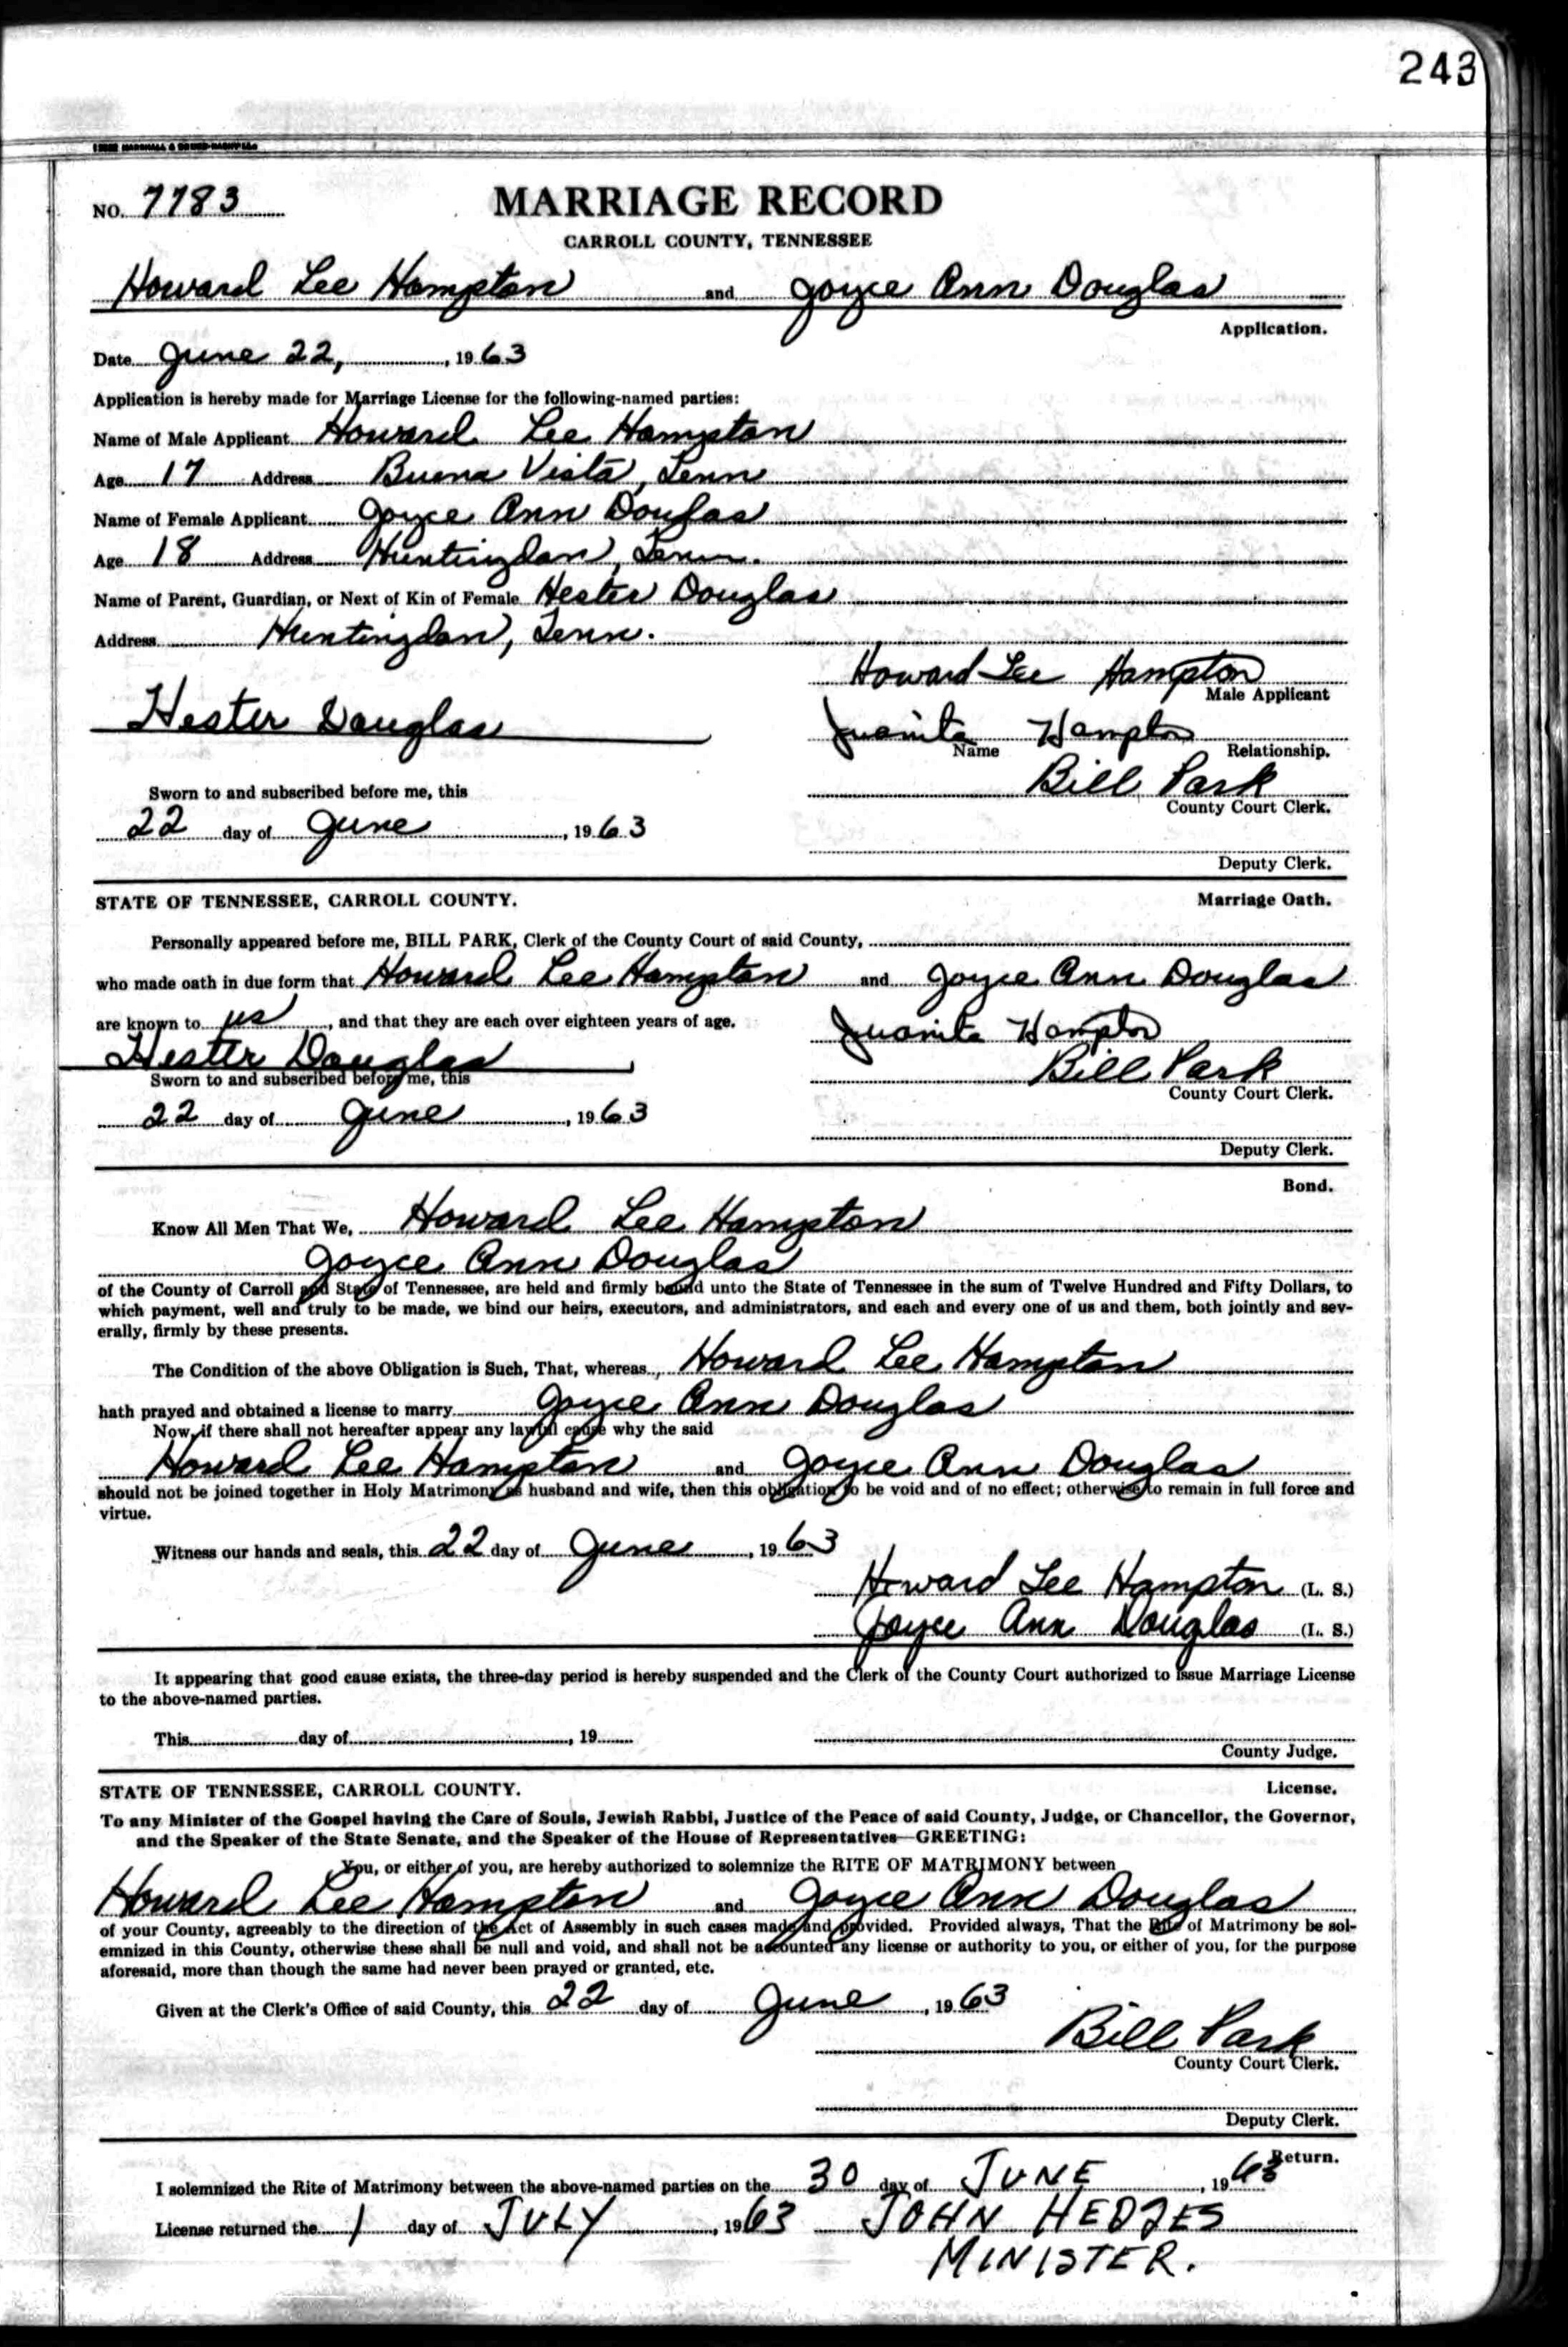 243
NO. 7783
MARRIAGE RECORD
CARROLL COUNTY, TENNESSEE
Howard Lee Hampton and Joyce Ann Douglas
Application.
Date June 22, , 1963
Application is hereby made for Marriage License for the following-named parties:
Name of Male Applicant Howard Lee Hampton
Age 17 Address Buena Vista, Tenn
Name of Female Applicant Joyce Ann Douglas
Age 18 Address Huntingdon, Tenn.
Name of Parent, Guardian, or Next of Kin of Female Hester Douglas
Address Huntingdon, Tenn.
Howard Lee Hampton
Male Applicant
Hester Douglas Juanita Hampton
Name Relationship.
Bill Park
Sworn to and subscribed before me, this
County Court Clerk.
22 day of June , 1963
Deputy Clerk.
STATE OF TENNESSEE, CARROLL COUNTY. Marriage Oath.
Personally appeared before me, BILL PARK, Clerk of the County Court of said County,
who made oath in due form that Howard Lee Hampton and Joyce Ann Douglas
are known to us , and that they are each over eighteen years of age. Juanita Hampton
Hester Douglas Bill Park
Sworn to and subscribed before me, this
County Court Clerk.
22 day of June , 1963
Deputy Clerk.
Bond.
Know All Men That We, Howard Lee Hampton
Joyce Ann Douglas
of the County of Carroll and State of Tennessee, are held and firmly bound unto the State of Tennessee in the sum of Twelve Hundred and Fifty Dollars, to
which payment, well and truly to be made, we bind our heirs, executors, and administrators, and each and every one of us and them, both jointly and sev-
erally, firmly by these presents.
The Condition of the above Obligation is Such, That, whereas, Howard Lee Hampton
hath prayed and obtained a license to marry Joyce Ann Douglas
Now, if there shall not hereafter appear any lawful cause why the said
Howard Lee Hampton and Joyce Ann Douglas
should not be joined together in Holy Matrimony as husband and wife, then this obligation to be void and of no effect; otherwise to remain in full force and
virtue.
Witness our hands and seals, this 22 day of June , 1963
Howard Lee Hampton (L. S.)
Joyce Ann Douglas (L. S.)
It appearing that good cause exists, the three-day period is hereby suspended and the Clerk of the County Court authorized to issue Marriage License
to the above-named parties.
This day of , 19
County Judge.
STATE OF TENNESSEE, CARROLL COUNTY. License.
To any Minister of the Gospel having the Care of Souls, Jewish Rabbi, Justice of the Peace of said County, Judge, or Chancellor, the Governor,
and the Speaker of the State Senate, and the Speaker of the House of Representatives—GREETING:
You, or either of you, are hereby authorized to solemnize the RITE OF MATRIMONY between
Howard Lee Hampton and Joyce Ann Douglas
of your County, agreeably to the direction of the Act of Assembly in such cases made and provided. Provided always, That the Rite of Matrimony be sol-
emnized in this County, otherwise these shall be null and void, and shall not be accounted any license or authority to you, or either of you, for the purpose
aforesaid, more than though the same had never been prayed or granted, etc.
Given at the Clerk's Office of said County, this 22 day of June , 1963
Bill Park
County Court Clerk.
Deputy Clerk.
Return.
I solemnized the Rite of Matrimony between the above-named parties on the 30 day of JUNE , 1963
License returned the 1 day of JULY , 1963 JOHN HEDGES
MINISTER.